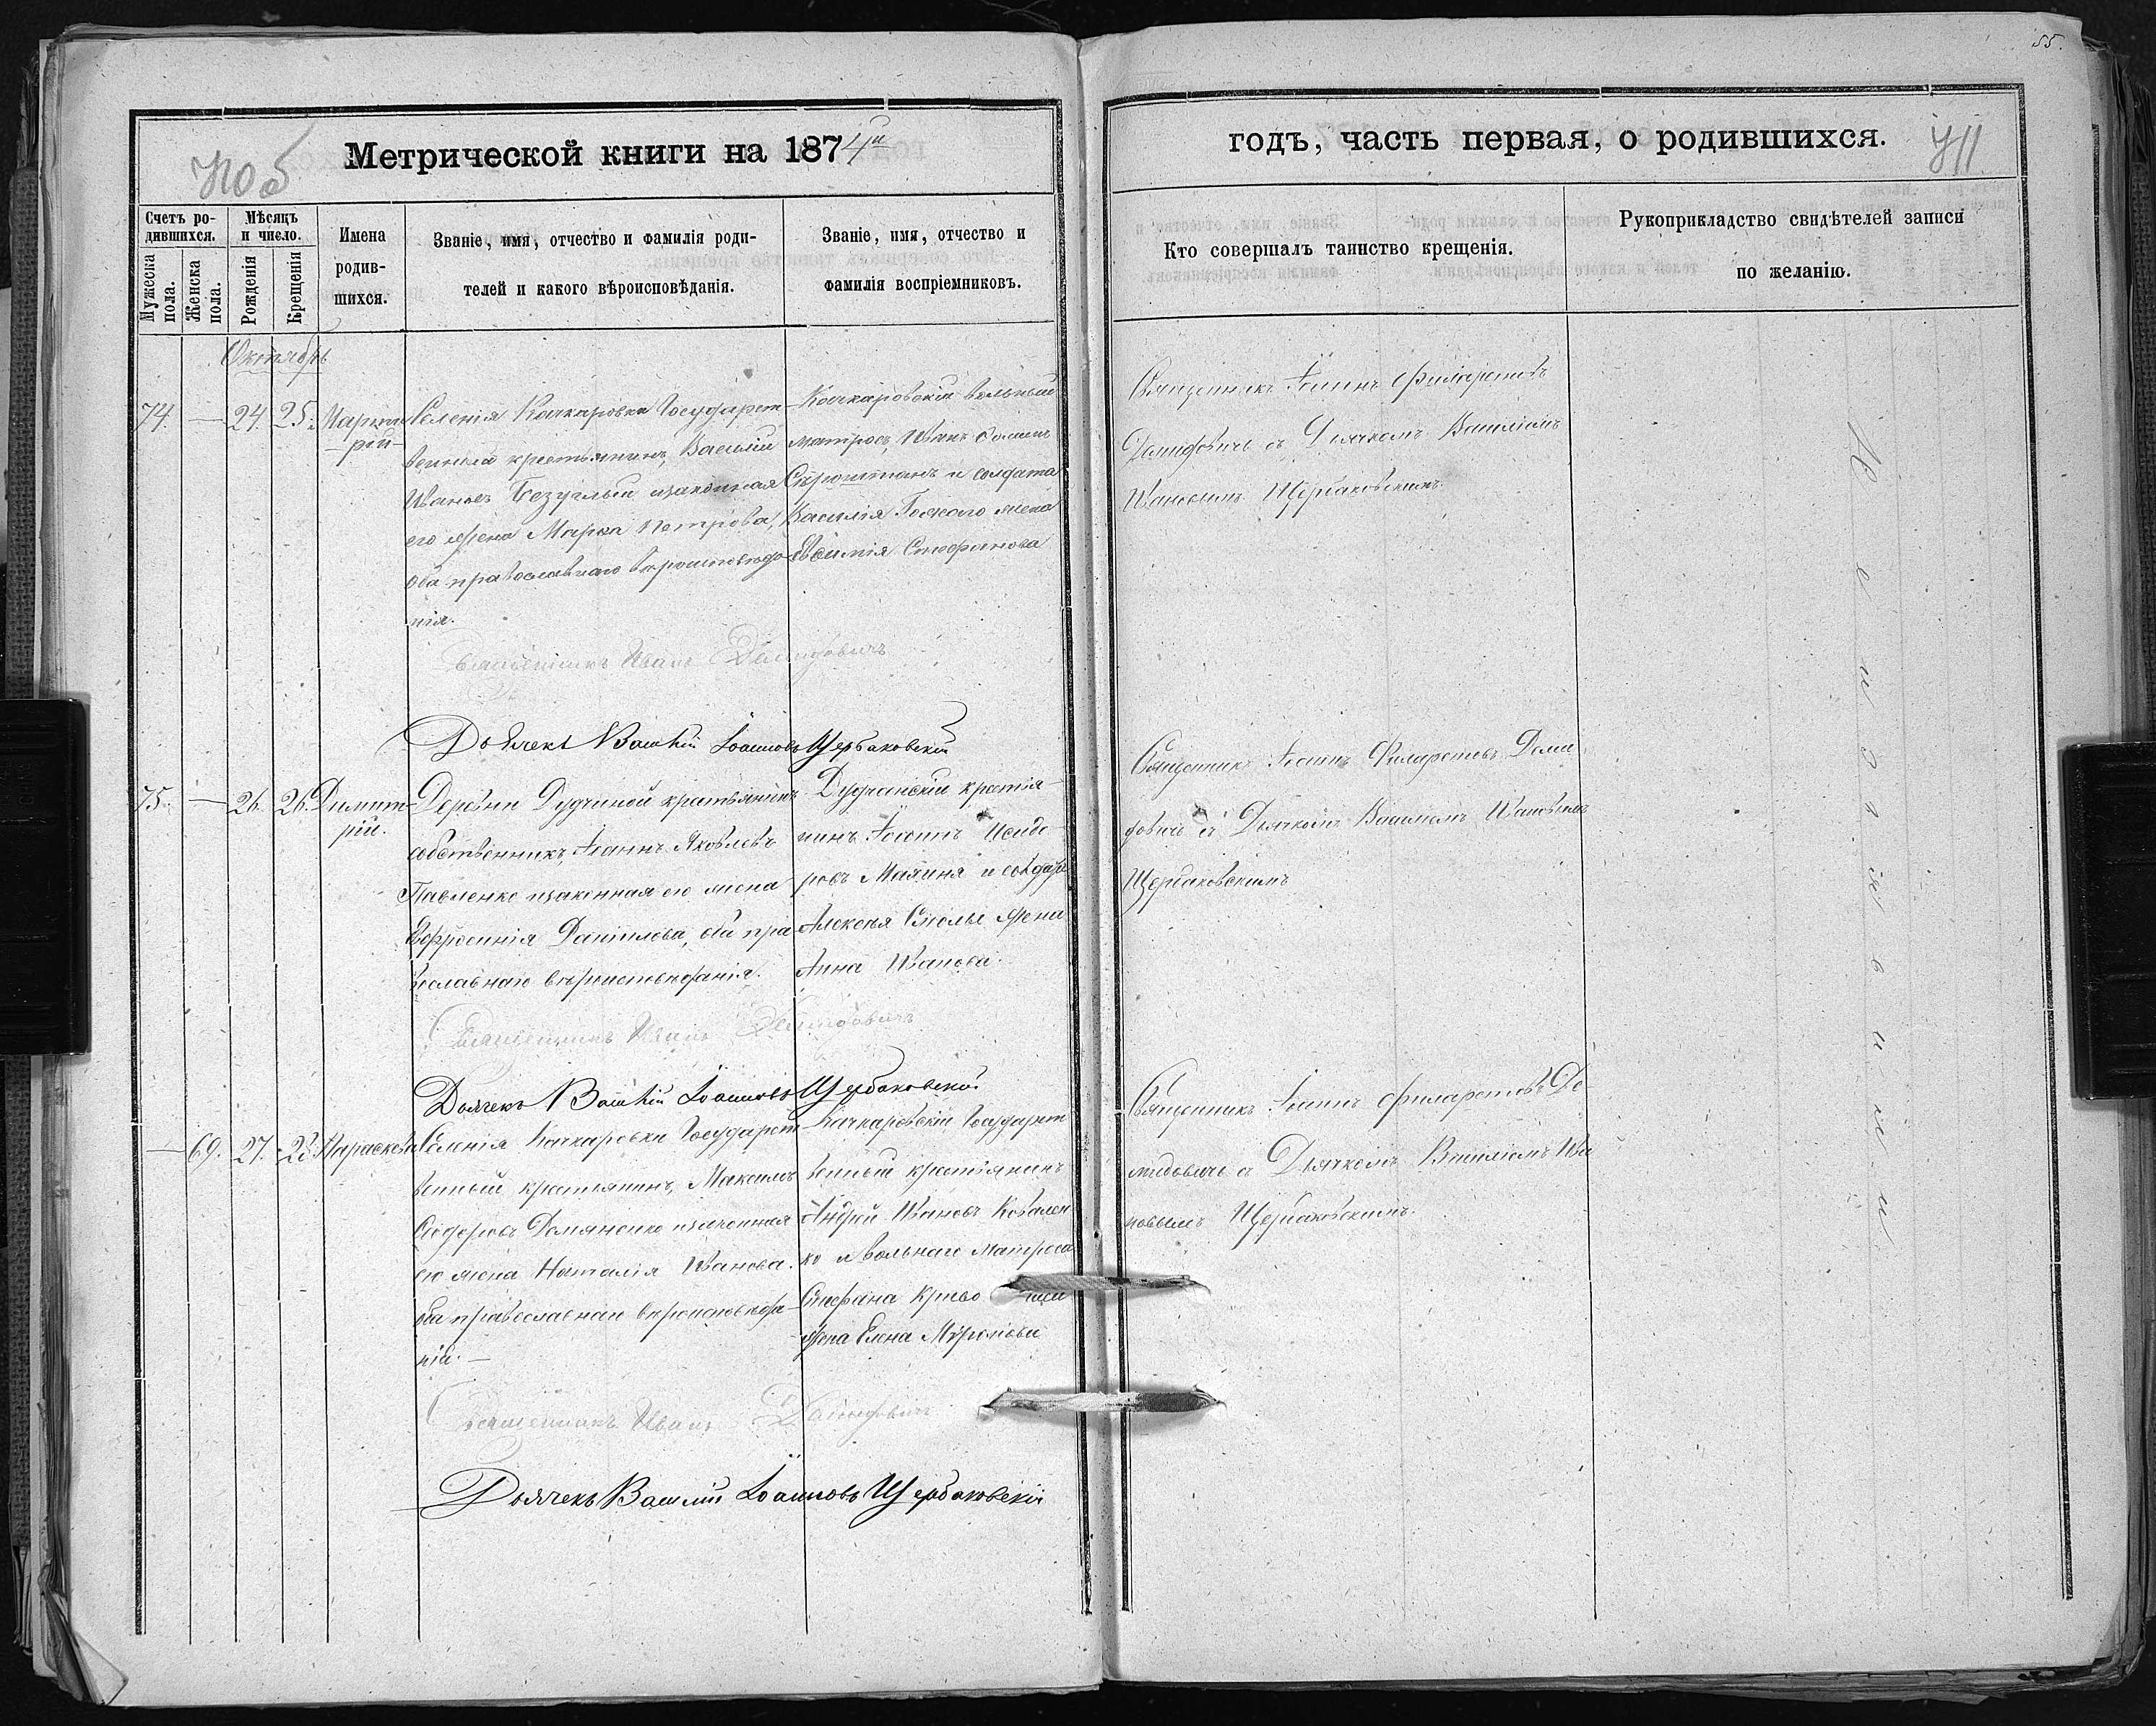 55.
Метрической книги на 1874й
годъ, часть первая, о родившихся.
711
Счетъ родившихся.
Мужеска пола.
Женска пола.
Мѣсяцъ и число.
Рожденія
Крещенія
Имена родившихся.
Званіе, имя, отчество и фамилія родителей и какого вѣроисповѣданія.
Званіе, имя, отчество и фамилія воспріемниковъ.
Кто совершалъ таинство крещенія.
Рукоприкладство свидѣтелей записи по желанію.
Октябрь
74. — 24. 25.
Селенія Качкаровки Государст
венный крестьянинъ, Василій
Ивановъ Безуглый и законная
его жена Марка Петрова,
оба православнаго вѣроисповѣда
нія.
Качкаровскій вольный
матросъ, Иванъ
и солдата
Василія жена
Стефанова
Священникъ Іоаннъ Филаретовъ
Демидовичъ съ Дьячкомъ Василіемъ
Ивановымъ Щербаковскимъ.
Священникъ Иванъ Демидовичъ
Дьячекъ Василій Іоанновъ Щербаковскій
75. — 26. 26. Димит
рій.
Деревни Дудчиной крестьянинъ
собственникъ, Іоаннъ Яковлевъ
Павленко и законная его жена
Евфросинія Даніилова, оба пра
вославнаго вѣроисповѣданія.
Дудчанскій крестья
нинъ Іоаннъ Исидо
ровъ и солдата
Алексѣя жена
Анна Иванова.
Священникъ Іоаннъ Филаретовъ Деми
довичъ съ Дьячкомъ Василіемъ Ивановымъ
Щербаковскимъ
Священникъ Иванъ Демидовичъ
Дьячекъ Василій Іоанновъ Щербаковскій
— 69. 27. 28. Параскева
Селенія Качкаровки Государст
венный крестьянинъ, Максимъ
Сидоровъ Демяненко и законная
его жена Наталія Иванова.
оба православнаго вѣроисповѣда
нія. —
Качкаровскій Государст
венный крестьянинъ
Андрей Ивановъ Ковален
ко и вольнаго матроса
Стефана
жена Елена Миронова
Священникъ Іоаннъ Филаретовъ Де
мидовичъ съ Дьячкомъ Василіемъ Ива
новымъ Щербаковскимъ.
Священникъ Иванъ Демидовичъ
Дьячекъ Василій Іоанновъ Щербаковскій